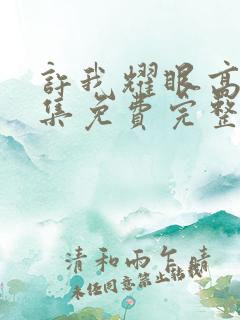 許我耀眼高
集免費完整
清和雨乍晴
未经同意禁止转载